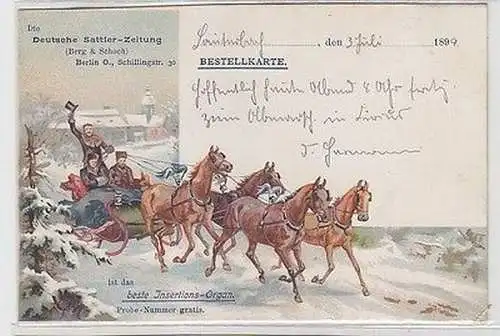 Die
Deutsche Sattler-Zeitung
(Berg & Schoch)
Berlin O., Schillingstr. 30
Lauterbach, den 3 Juli 1899
BESTELLKARTE.
Hoffentlich heute Abend 8 Uhr fertig
zum in
ist das
beste Insertions-Organ.
Probe-Nummer gratis.